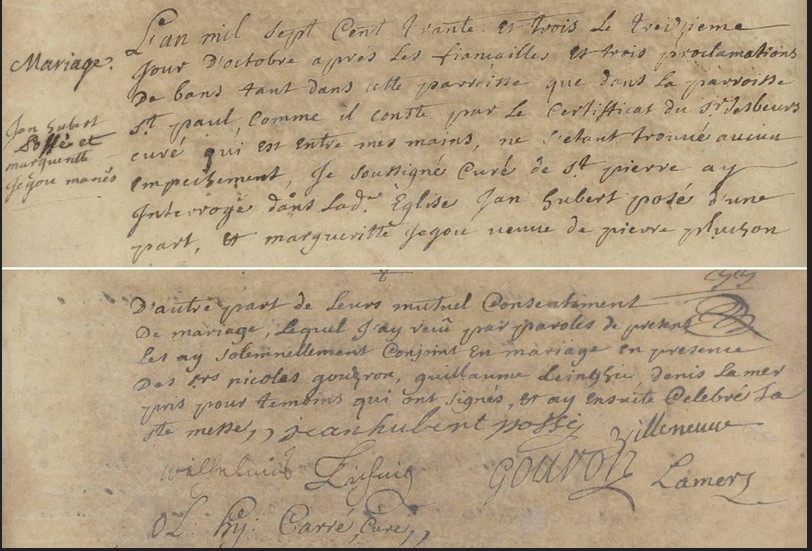 Mariage.
Jan hubert
et
margueritte
Jegou mariés
L'an mil sept Cent trante et trois Le treizieme
Jour D'octobre aprés Les fiancailles Et trois proclamations
De bans tant dans cette parroisse que dans La parroisse
St. paul, comme il conste par Le Certificat du Sr.
curé qui est Entre mes mains, ne s'etant trouué aucun
Empechement, Je soussigné Curé de St. pierre ay
Interrogé dans Lade. Eglise Jan hubert posé d'une
part, Et margueritte Jegou veuue de pierre
D'autre part de Leurs mutuel Consentement
De mariage, Lequel J'ay receü par paroles de present
Les ay solemnellement Conjoint En mariage en presence
Des srs nicolas gouzron, guillaume denis La mer
pris pour temoins qui ont signés, et ay Ensuite Celebré La
ste messe,, jean hubert
villeneuue
gouron
Lamers
hy: Carré, Curé,,